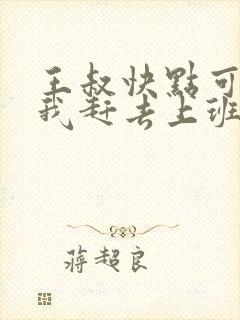 王叔快點可
我赶去上班
蒋超良